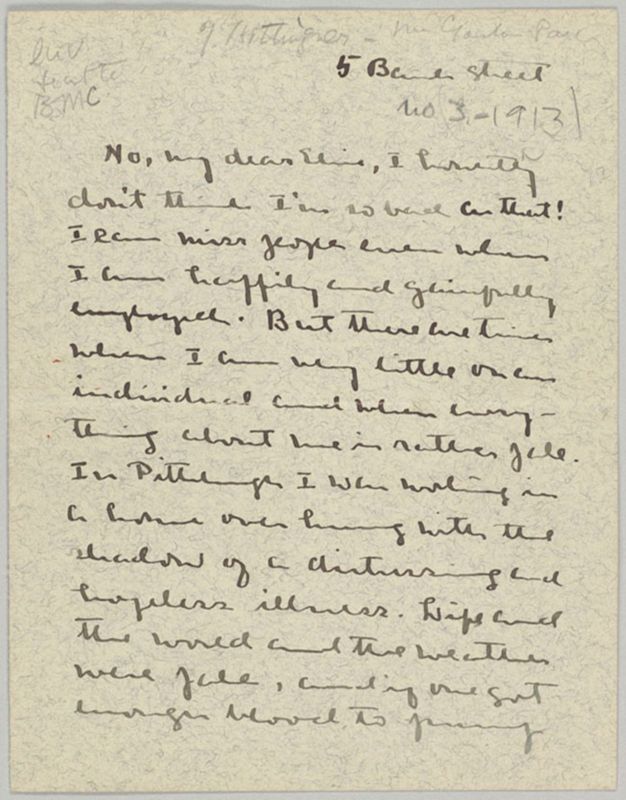 5 Bank Street
1913
No, my dear Elsie, I honestly
don't think I'm so bad as that!
I can miss people even when
I am happily and gainfully
employed. But there are times
when I am very little of an
individual and when every-
thing about me is rather pale.
In Pittsburgh I was working in
a house over hung with the
shadow of a distressing and
hopeless illness. Life and
the world and the weather
were pale, and if one got
enough blood to pump